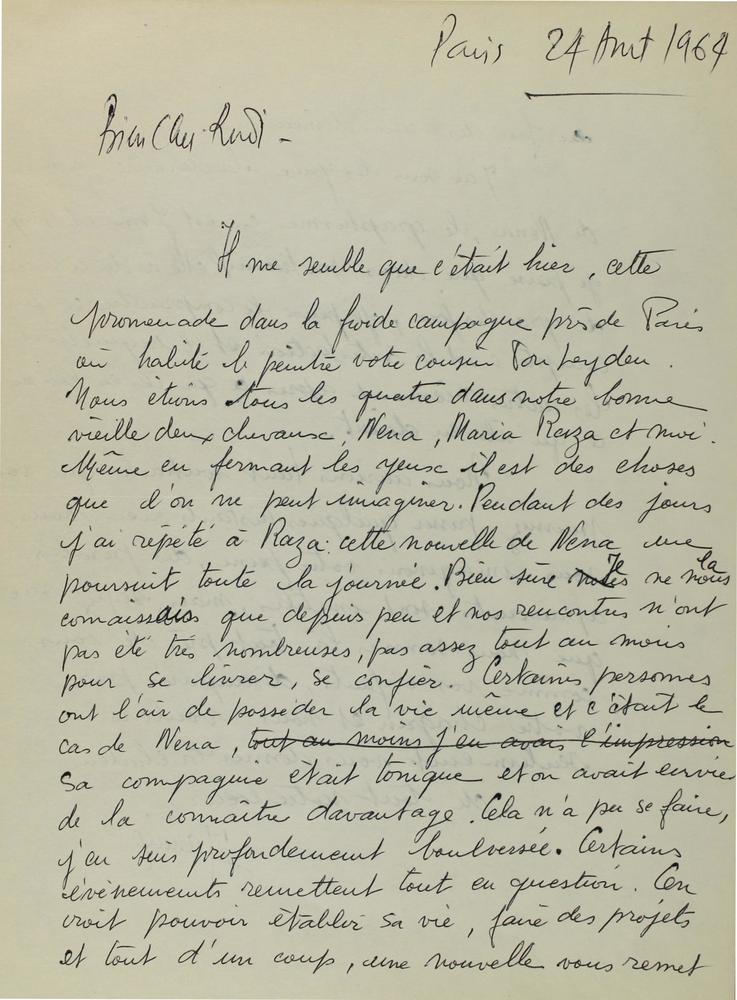 Paris 24 Avril 1964
Bien Cher Rudi -
Il me semble que c'était hier, cette
promenade dans la froide campagne près de Paris
où habite le peintre votre cousin Ton Leyden.
Nous étions tous les quatre dans notre bonne
vieille deux chevaux, Nena, Maria Raza et moi.
Même en fermant les yeux il est des choses
que l'on ne peut imaginer. Pendant des jours
j'ai répété à Raza: cette nouvelle de Nena me
poursuit toute la journée. Bien sûre Je ne la
connaissais que depuis peu et nos rencontres n'ont
pas été très nombreuses, pas assez tout au moins
pour se livrer, se confier. Certaines personnes
ont l'air de posséder la vie même et c'était le
cas de Nena, tout au moins j'en avais l'impression
Sa compagnie était tonique et on avait envie
de la connaître davantage. Cela n'a pu se faire,
j'en suis profondement boulversée. Certains
évènements remettent tout en question. On
croit pouvoir établir sa vie, faire des projets
et tout d'un coup, une nouvelle vous remet